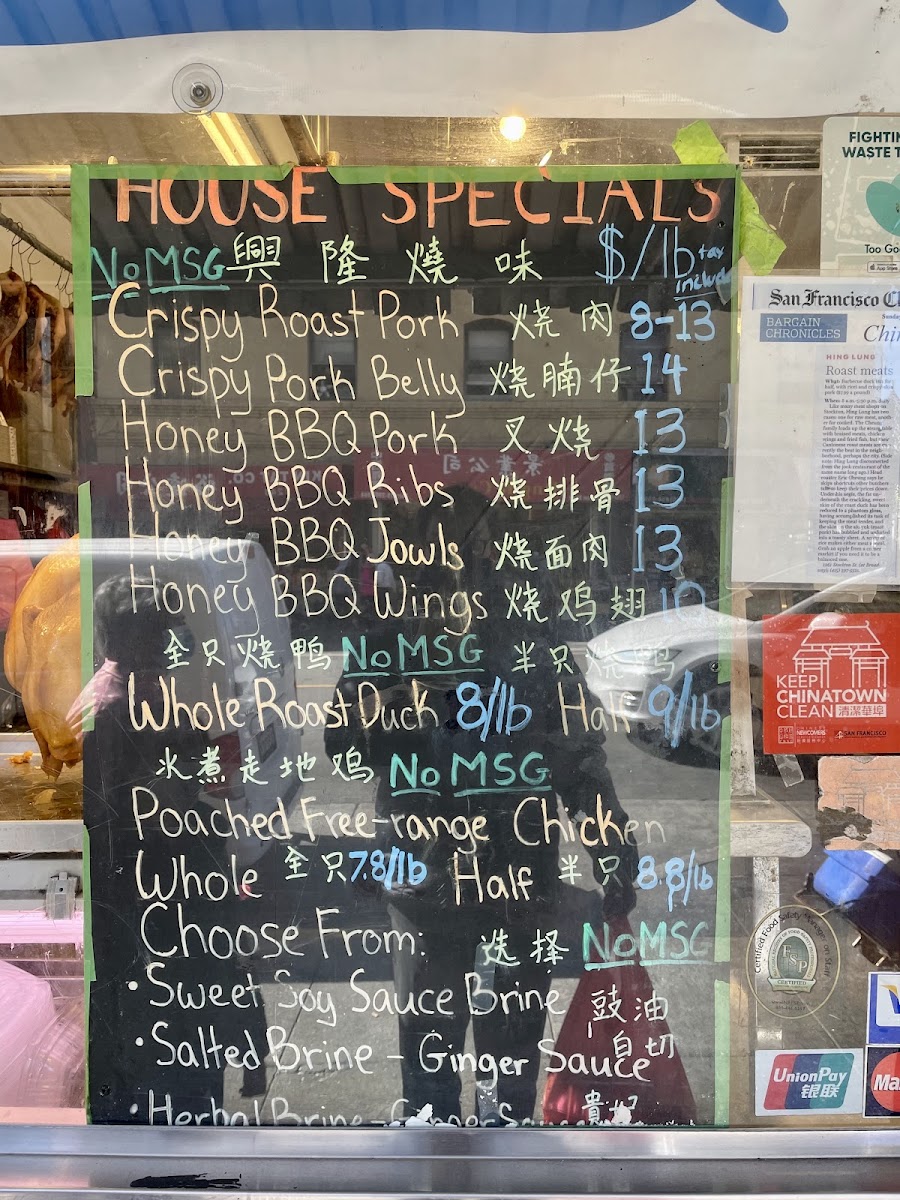 HOUSE SPECIALS
No MSG 興隆燒味 $/lb tax
Crispy Roast Pork 烧肉 8-13
Crispy Pork Belly 烧腩仔 14
Honey BBQ Pork 叉烧 13
Honey BBQ Ribs 烧排骨 13
Honey BBQ Jowls 烧面肉 13
Honey BBQ Wings 烧鸡翅 10
全只烧鸭 No MSG 半只烧鸭
Whole Roast Duck 8/lb Half 9/lb
水煮走地鸡 No MSG
Poached Free-range Chicken
Whole 全只 7.8/lb Half 半只 8.8/lb
Choose From: 选择 No MSG
• Sweet Soy Sauce Brine 豉油
• Salted Brine - Ginger Sauce 白切
• Herbal Brine - Ginger Sauce 貴妃
FIGHTING
WASTE
Too Go
San Francisco
BARGAIN
CHRONICLES
HING LUNG
Roast meats
KEEP
CHINATOWN
CLEAN 清潔華埠
NEWCOMERS
SAN FRANCISCO
Certified Food Safety Manager on Staff
FSP
CERTIFIED
UnionPay
银联
V
Ma